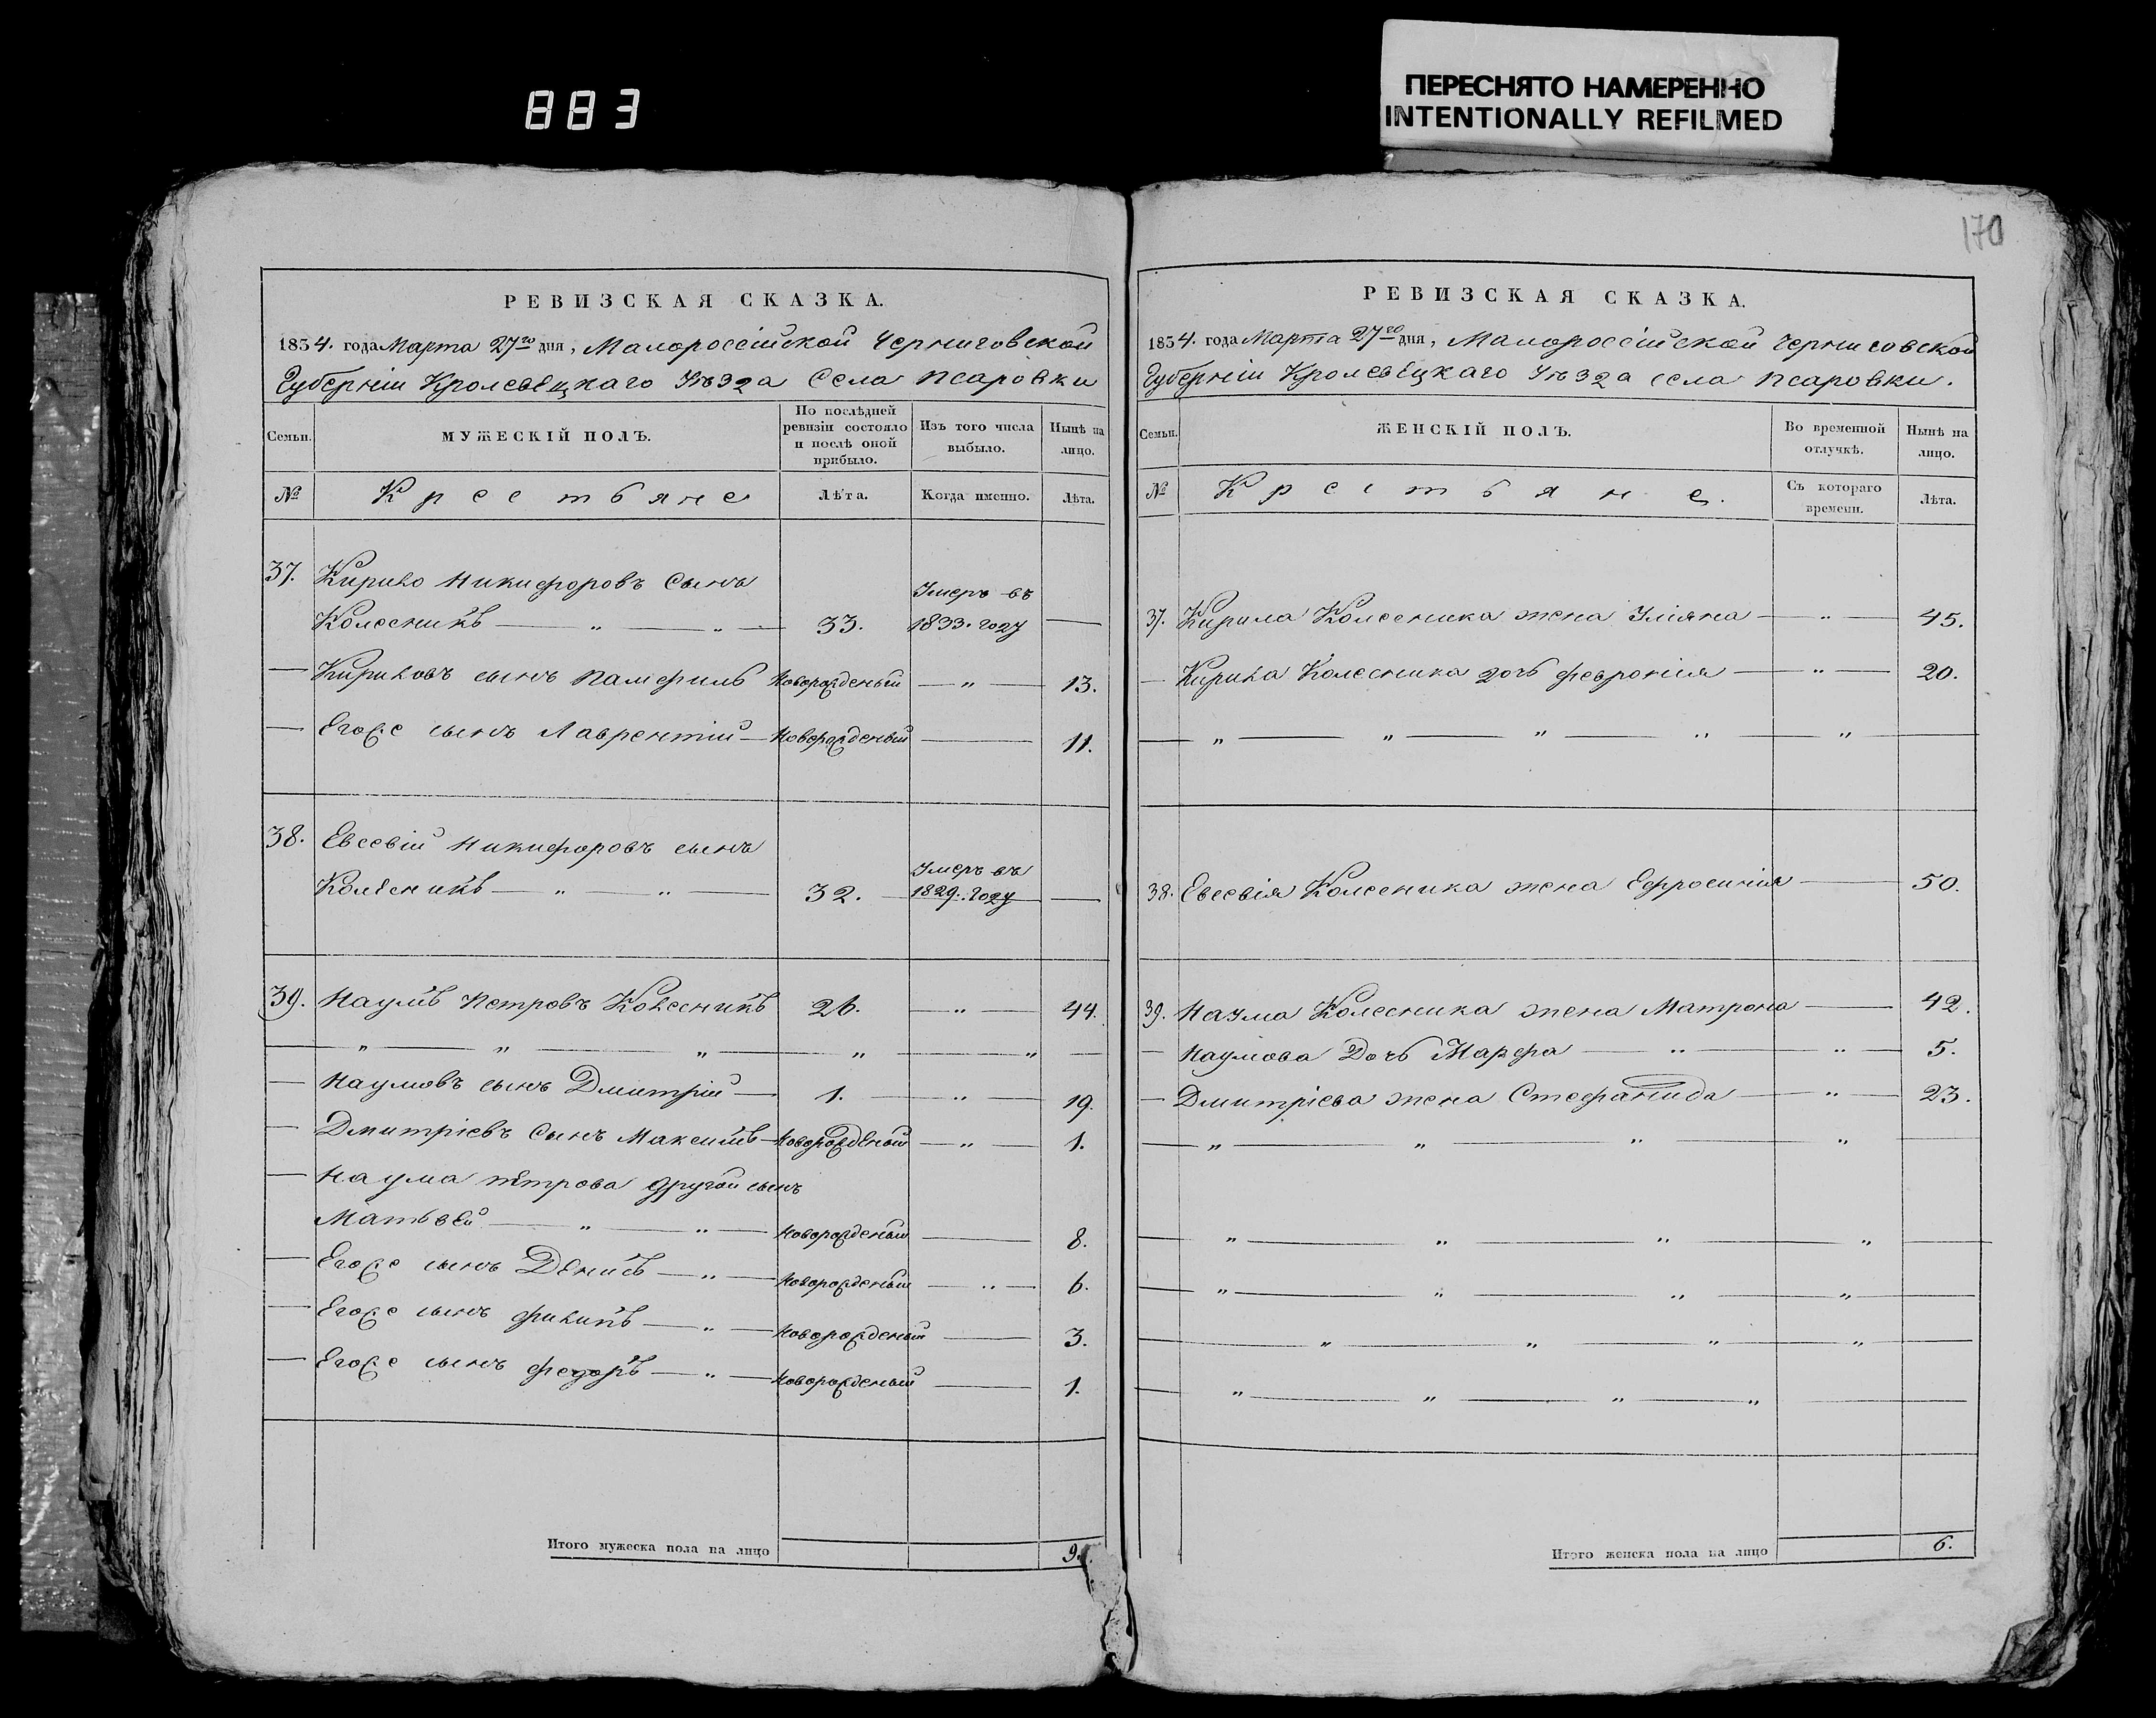 883
ПЕРЕСНЯТО НАМЕРЕННО
INTENTIONALLY REFILMED
170
РЕВИЗСКАЯ СКАЗКА.
1834. года Марта 27го дня, Малороссійской Черниговской
Губерніи Кролевецкаго Уѣзда Села Псаровки
Семьи.
МУЖЕСКІЙ ПОЛЪ.
По послѣдней ревизіи состояло и послѣ оной прибыло.
Изъ того числа выбыло.
Нынѣ на лицо.
№
Крестьяне
Лѣта.
Когда именно.
Лѣта.
37. Кирило Никифоровъ Сынъ
Колесникъ — „ — „ — 33. Умеръ въ 1833. году —
— Кириловъ сынъ Памфилъ Новорожденый — „ — 13.
— Егоже сынъ Лаврентій — Новорожденый — 11.
38. Евсевій Никифоровъ сынъ
Колесникъ — „ — „ — 32. — Умеръ въ 1829. году —
39. Наумъ Петровъ Колесникъ 26. — „ — 44.
— „ — „ — „ — „ — „ —
— Наумовъ сынъ Дмитрій — 1. — „ — 19.
— Дмитріевъ Сынъ Максимъ — Новорожденый — „ — 1.
— Наума петрова другой сынъ
Матвей — „ — „ — Новорожденый — 8.
— Егоже сынъ Денисъ — „ — Новорожденый — „ — 6.
— Егоже сынъ филипъ — „ — Новорожденый — 3.
— Егоже сынъ федоръ — „ — Новорожденый — 1.
Итого мужеска пола на лицо 9.
РЕВИЗСКАЯ СКАЗКА.
1834. года Марта 27го дня, Малороссійской Черниговской
Губерніи Кролевецкаго Уѣзда села Псаровки.
Семьи.
ЖЕНСКІЙ ПОЛЪ.
Во временной отлучкѣ.
Нынѣ на лицо.
№
Крестьяне.
Съ котораго времени.
Лѣта.
37. Кирила Колесника жена Уліяна — „ — 45.
— Кирила Колесника дочь февронія — „ — 20.
— „ — „ — „ — „ — „ —
38. Евсевія Колесника жена Ефросинія — 50.
39. Наума Колесника жена Матрона — 42.
— Наумова Дочь Марфа — „ — „ — 5.
— Дмитріева жена Стефанида — „ — 23.
— „ — „ — „ — „ —
— „ — „ — „ — „ —
— „ — „ — „ — „ —
— „ — „ — „ — „ —
— „ — „ — „ — „ —
Итого женска пола на лицо 6.